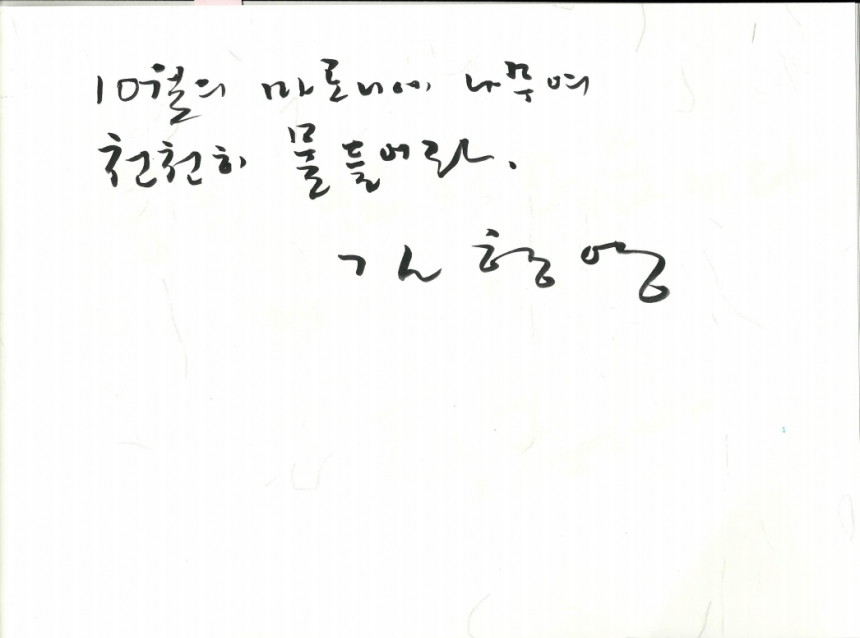 10월의 마로니에 나무여
천천히 물들어라.
강형영